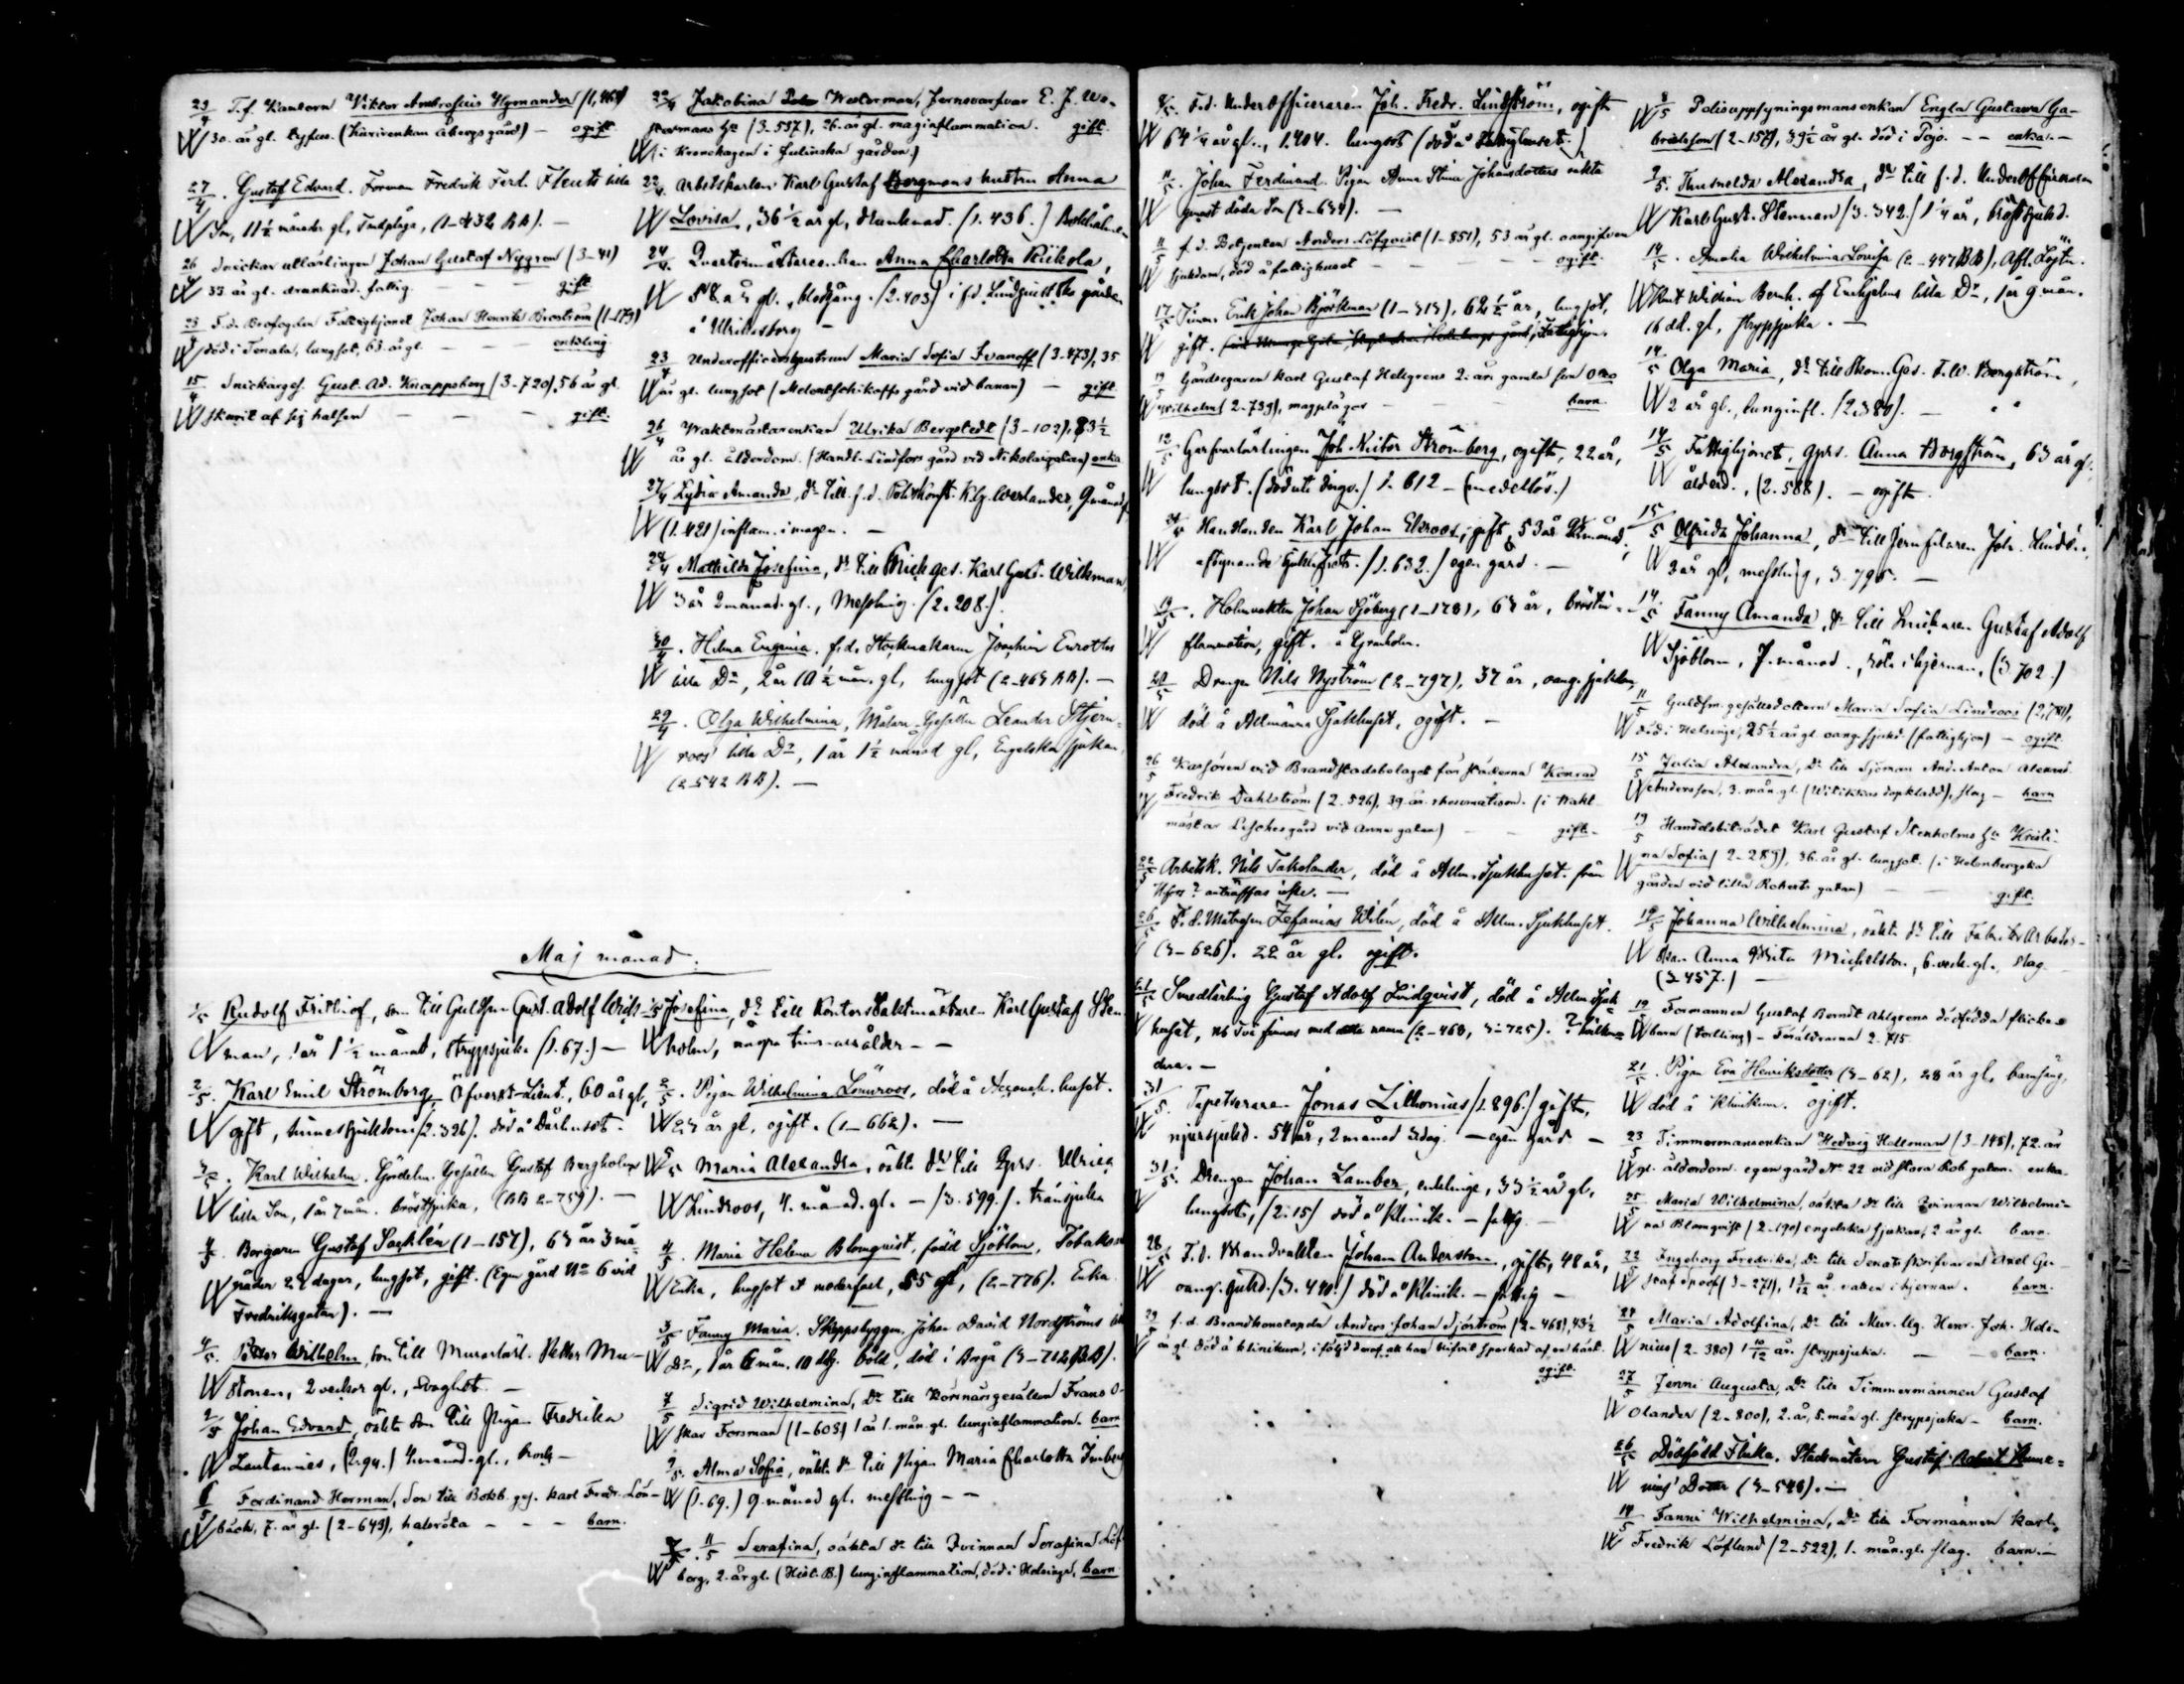 23/4 T.f. Kantorn Viktor Ambrosius Hymander (1,464)
30. år gl. tyfus. (Kärivenkan Åbergs gård) — ogift.
27/4. Gustaf Edvard. Forman Fredrik Ferd. Flents lilla
Son, 11 1/2 månader gl, (1-432 BB). —
26/4 Snickar utlärlingen Johan Gustaf Nygren (3-41)
33 år gl. drunknad. fattig — — gift
23 F.d. Brofogden Fattighjonet Johan Henrik Broström (1-179)
död i Tenala, lungsot, 63. år gl — — enkling
15/4 Snickarges. Gust. Ad. Knappsberg (3-720), 56 år gl.
skurit af sig halsen — — — gift.
22/4 Jakobina Westerman, E. J. We-
stermans hu (3-537), 26. år gl. maginflammation. gift.
(i Kronohagen i Julinska gården.)
22/4. Arbetskarlen Karl Gustaf Bergmans hustru Anna
Lovisa, 36 1/2 år gl, drunknad. (1. 436.)
24/4. Qvartermästareenkan Anna Charlotta Riikola,
58 år gl., blodgång. (2.403) i f.d. Lindqvistska gården
å Ulrikasborg —
23/4 Underofficershustrun Maria Sofia Ivanoff (3-473), 35
år gl. lungsot ( gård vid banan) — gift.
26/4 Waktmästarenkan Ulrika Bergstedt (3-102), 83 1/2
år gl. ålderdom. (Handl. Lindfors gård vid Nikolaigatan) enka
27/4 Lydia Amanda, dr till f.d. Poliskonst. K.G. Werlander, 9 månad gl.
(1.421) inflam. i magen. —
28/4 Mathilda Josefina, dr till Karl Gust. Wilkman,
3 år 2 månad. gl., Messling. (2.208.)
30/4. Hilma Eugenia. f.d. Joachim Enrotts
lilla Dr, 2 år 10 1/2 mån. gl, lungsot (2-463 BB). —
29/4. Olga Wilhelmina, Målare Gesällen Leander Stjern-
roos' lilla Dr, 1 år 1 1/2 månad gl, Engelska sjukan,
(2-542 BB). —
Maj månad.
1/5 Rudolf Frithiof, son till Guldsm. Gust. Adolf Wick-
man, 1 år 1 1/2 månad, strypsjuka (1.67.) —
2/5. Karl Emil Strömberg, Öfverst-Lieut., 60 år gl,
gift, sinnessjukdom (2.326). död å Dårhuset. —
3/5. Karl Wilhelm. Gördelm. Gesällen Gustaf Bergholms
lilla Son, 1 år 7 mån. bröstsjuka, (BB 2-759). —
4/5. Borgaren Gustaf Sacklén (1-157), 63 år 3 må-
nader 22 dagar, lungsot, gift. (Egen gård No 6 vid
Fredriksgatan). —
4/5. Petter Wilhelm, son till Murarlärl. Petter Mu-
stonen, 2 veckor gl., Svaghet —
2/5 Johan Edvard, oäkta son till Pigan Fredrika
Lautanies, (2.94.) 4 månad. gl., —
6/5 Ferdinand Herman, Son till Bokb. ges. Karl Fredr. Lön-
bäck, 7. år gl. (2-643), halsröta — — — barn.
1/5 Josefina, dr till Kontorsvaktmästaren Karl Gustaf Sten-
holm, några timmars ålder — —
2/5. Pigan Wilhelmina Lönnroos, död å Accouch. huset.
23 år gl, ogift. (1-662). —
5/5 Maria Alexandra, oäkta dr till Qprs. Ulrica
Lindroos, 4. månad. gl. — (3.599.). tränsjuka
4/5. Maria Helena Blomquist, född Sjöblom,
Enka, lungsot, 55 gl, (2-776). Enka
3/5 Fanny Maria. Skeppsbyggm. Johan David Nordströms lilla
Dr, 1 år 6 mån. 10 dg. böld, död i Borgå (3-722 BB).
7/5 Sigrid Wilhelmina, Dr till Körsnärsgesällen Frans O-
skar Forsman (1-605) 1 år 1. mån. gl. lunginflammation. barn
9/5. Alma Sofia, oäkta dr till Pigan Maria Charlotta
(1.69.) 9 månad gl. messling — —
11/5 Serafina, oäkta dr till Qvinnan Serafina Löf-
berg, 2. år gl. (Hist. B.) lunginflammation, död i Helsinge. barn
8/5. F.d. Underofficeraren Joh. Fredr. Lindström, ogift
64 1/4 år gl., 1.404. lungsot (död å )
11/5. Johan Ferdinand. Pigan Anna Stina Johansdotters oäkta
genast döda Son (3-634). —
11/5 f.d. Betjenten Anders Löfqvist (1-851), 53 år gl. oangifven
sjukdom, död å fattighuset — — — — ogift.
17/5 Timm. Erik Johan Björkman (1-313), 62 1/2 år, lungsot,
gift.
19/5 Gårdsegaren Karl Gustaf Hellgrens 2. års gamla son Otto
Wilhelm (2-739), magplågor — — — barn.
12/5 Garfvarlärlingen Joh. Victor Strömberg, ogift, 22 år,
lungsot. 1. 612 — (medellös.)
Handlanden Karl Johan Ekroos, gift, 53 år månad,
aftynande (1.632.) egen gård. —
19/5. Holmvakten Johan Sjöberg (1-178), 63 år, bröstin-
flammation, gift. å Gräsholm.
20/5 Drengen Nils Nyström (2-797), 37 år, oang. sjukdom,
död å Allmänna Sjukhuset, ogift. —
26/5 Kassören vid Brandstodsbolaget för städerna Konrad
Fredrik Dahlström (2.526), 39. år. rheumatism. (i Wakt-
mästar Leschs gård vid Anne gatan) — — gift.
22/5 Arbetsk. Nils Takolander, död å Allm. Sjukhuset. från
Hfors? anträffas icke. —
26/5 F.d. Matrosen Zefanias Wilén, död å Allm. Sjukhuset.
(3-626). 22 år gl. ogift.
21/5 Smedlärling Gustaf Adolf Lindqvist, död å Allm. Sjuk-
huset, Nb två finnas med detta namn (2-468, 3-725). ? hvilken-
dera. —
31/5. Tapetseraren Jonas Lilthonius (1.896.) gift,
njursjukd. 54 år, 2 månad 3 dag. — egen gård —
31/5. Drengen Johan Lamber, enkling, 33 1/2 år gl,
lungsot, (2.15) död å Klinik. — fattig —
28/5 F.d. Brandvakten Johan Andersson, gift, 48 år,
oang. sjukd. (3.440.) död å Klinik. — fattig —
29/5 f.d. Brandkonstapeln Anders Johan Sjöström (2-463), 43 1/2
år gl. död å klinikum, i följd deraf att han blifvit sparkad af en häst.
ogift.
8/5 Polisuppsyningsmansenkan Engla Gustava Ga-
brielsson (2-157), 39 1/2 år gl. död i Pojo. — — enka. —
9/5. Thusnelda Alexandra, dr till f.d. Underofficeraren
Karl Gust. Stenman (3.342.) 1 1/4 år, bröstsjukd.
14/5. Amalia Wilhelmina Lovisa (2-447 BB), Afl. Löjtn.
Knut Widian Bernh. af Enehjelms lilla Dr, 1 år 9 mån.
16 dd. gl, strypsjuka. —
14/5 Olga Maria, dr till Skom. Ges. F.W. Bergström,
2 år gl., lunginfl. (2.380). —
14/5 Fattighjonet, qprs. Anna Borgström, 63 år gl.
ålderd., (2.588). — ogift
15/5 Olfrida Johanna, dr till Jernfilaren Joh. Lindén,
3 år gl, messling, 3.795. —
14/5. Fanny Amanda, dr till Snickaren Gustaf Adolf
Sjöblom, 7. månad., röta i hjernan, (3.702.)
11/5 Guldsm. gesällsdottern Maria Sofia Lindroos (2,781),
död i Helsinge, 25 1/2 år gl. oang. sjukd (fattighjon) — ogift
15/5 Julia Alexandra, dr till Sjöman And. Anton Alexand.
Andersson, 3. mån. gl. slag — barn
19/5 Handelsbiträdet Karl Gustaf Stenholms hu Kristi-
na Sofia (2-289), 36. år gl. lungsot. (i Holmbergska
gården vid lilla Roberts gatan) — — gift.
19/5 Johanna Wilhelmina, oäkta dr till Fabriks Arbeter-
skan Anna Brita Michelsson, 6. veck. gl., slag —
(2 457.) —
19/5 Formannen Gustaf Berndt Ahlgrens dödfödda flicke-
barn (tvilling) — Föräldrarna 2-715
21/5. Pigan Eva Henriksdotter (3-62), 28 år gl, barnsäng,
död å Klinikum. ogift.
23/5 Timmermansenkan Hedvig Hellman (3-148), 72. år
gl. ålderdom. egen gård No 22 vid stora Rob. gatan. enka.
25/5 Maria Wilhelmina, oäkta dr till Qvinnan Wilhelmi-
na Blomqvist (2-190) engelska sjukan, 2 år gl. barn.
22/5 Ingeborg Fredrika, dr till Senatsskrifvaren Axel Gu-
staf Spoof (3-271), 1 3/12 år. vatten i hjernan. barn.
27/5 Maria Adolfina, dr till Mur. lg. Henr. Joh. Hele-
nius (2-380) 1 10/12 år. strypsjuka. — — barn.
27/5 Jenni Augusta, dr till Timmermannen Gustaf
Olander (2-800), 2. år, 5. mån gl. strypsjuka — barn.
26/5 Dödfödd Flicka. Stadsmätarn Gustaf Robert Hume-
nius' Dotter (3-528). —
18/5 Fanni Wilhelmina, dr till Formannen Karl
Fredrik Löflund (2-522), 1. mån. gl. slag. barn. —